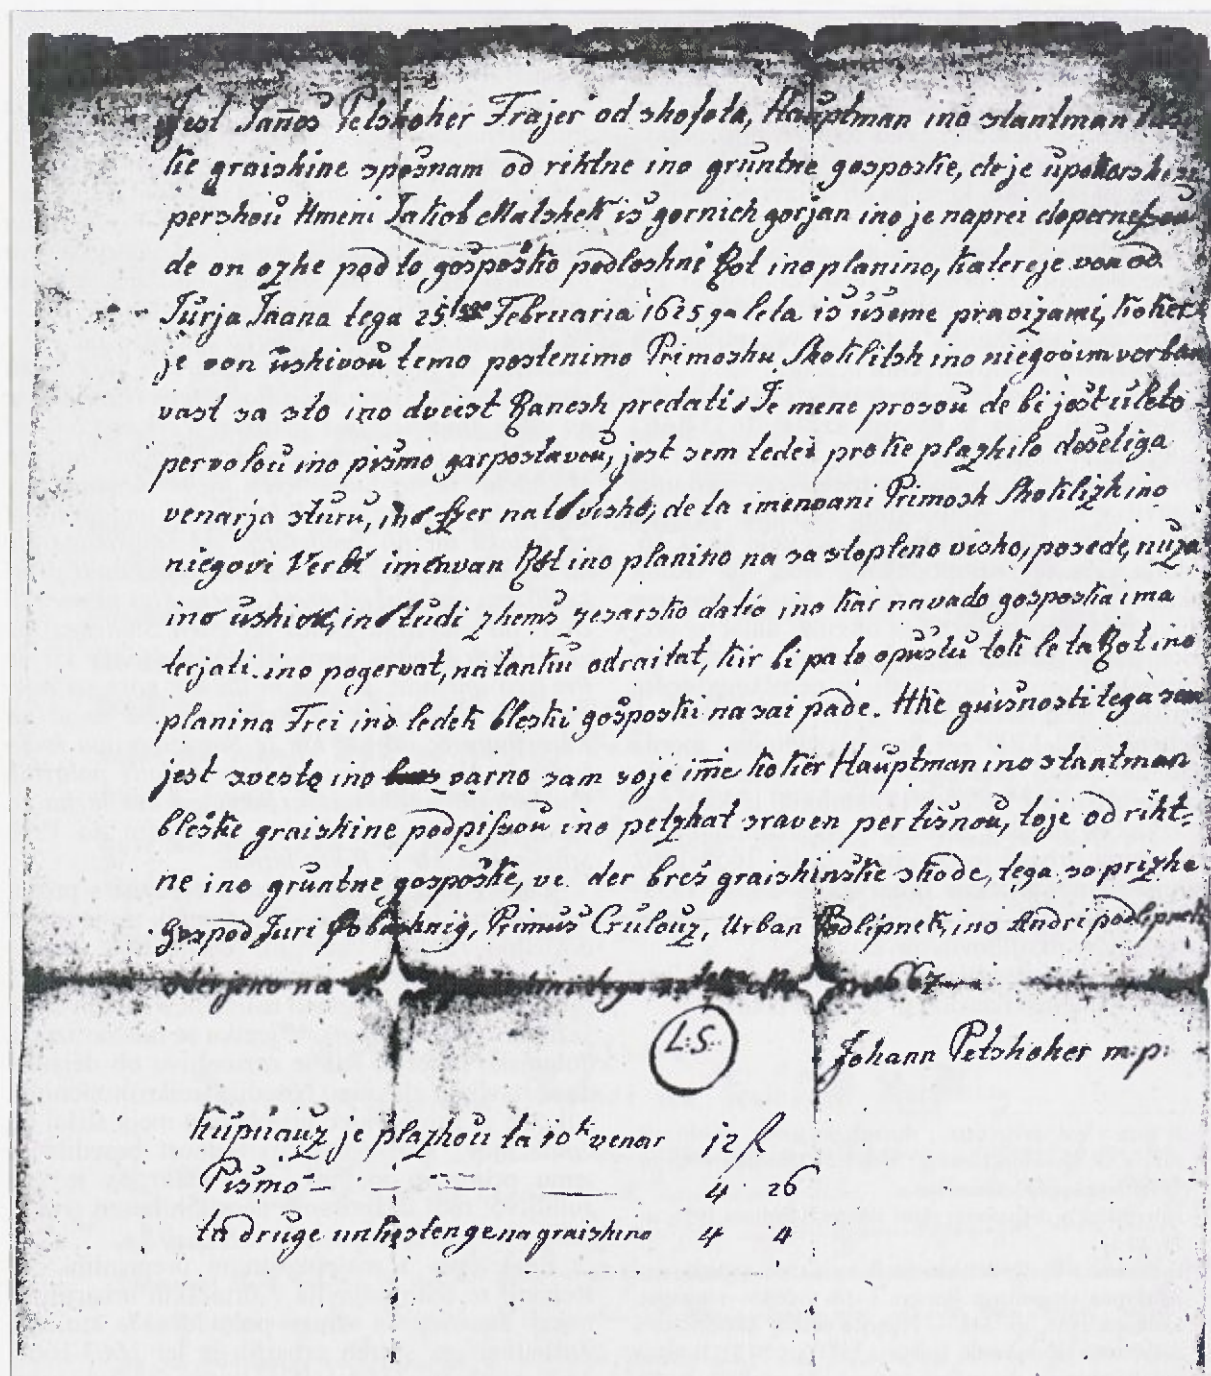 Jest Jañes Petshoher Frajer od shofeta, Hauptman ino stantman
kie graishine sposnam od rihtne ino gruntne gosposke, de je
pershou Hmeni Jakob Malshek is gornich gorjan ino je naprei
de on ozhe pod to gosposko podloshni Rot ino planino, katereje von od
Jurja Jaana tega 25 Februaria 1625 ga leta is useme pravizami, koker
je von ushivou temo postenimo Primoshu Skoklitsh ino niegovim
vast sa sto ino dveist Ranesh predati, Je mene prosou de bi jest uleto
pervolou ino pismo gorpostavou, jest sem tedei protie plazhilo desetiga
venarja sturu, ino visho, de ta imenvani Primosh Skoklizh ino
niegovi Verbi imenvan Rot ino planino na sa stopleno visho, posede, nuza
ino ushiva, ino tudi zhems zesarsko datio ino kar navado gosposka ima
terjati ino pogervat, natanku odraitat, kir bi pa to opustu tok le ta Rot ino
planina Frei ino ledek bleski gosposki na sai pade. Hkie guisnosti tega sim
jest svesto ino varno sam soje ime koker Hauptman ino stantman
bleske graishine podpissou ino petzhat sraven pertisnou, toje od riht-
ne ino gruntne gosposke, ve der bres graishinske shode, tega so prizhe
Gospod Juri, Primus Crulouz, Urban Podlipnek, ino Andri podlipnek
na tega 667
L:S:
Johann Petshoher m:p:
Kupuauz je plazhou ta 10k venar 12 fl
Pismo — — — 4 26
ta druge unkostenge na graishino 4 4